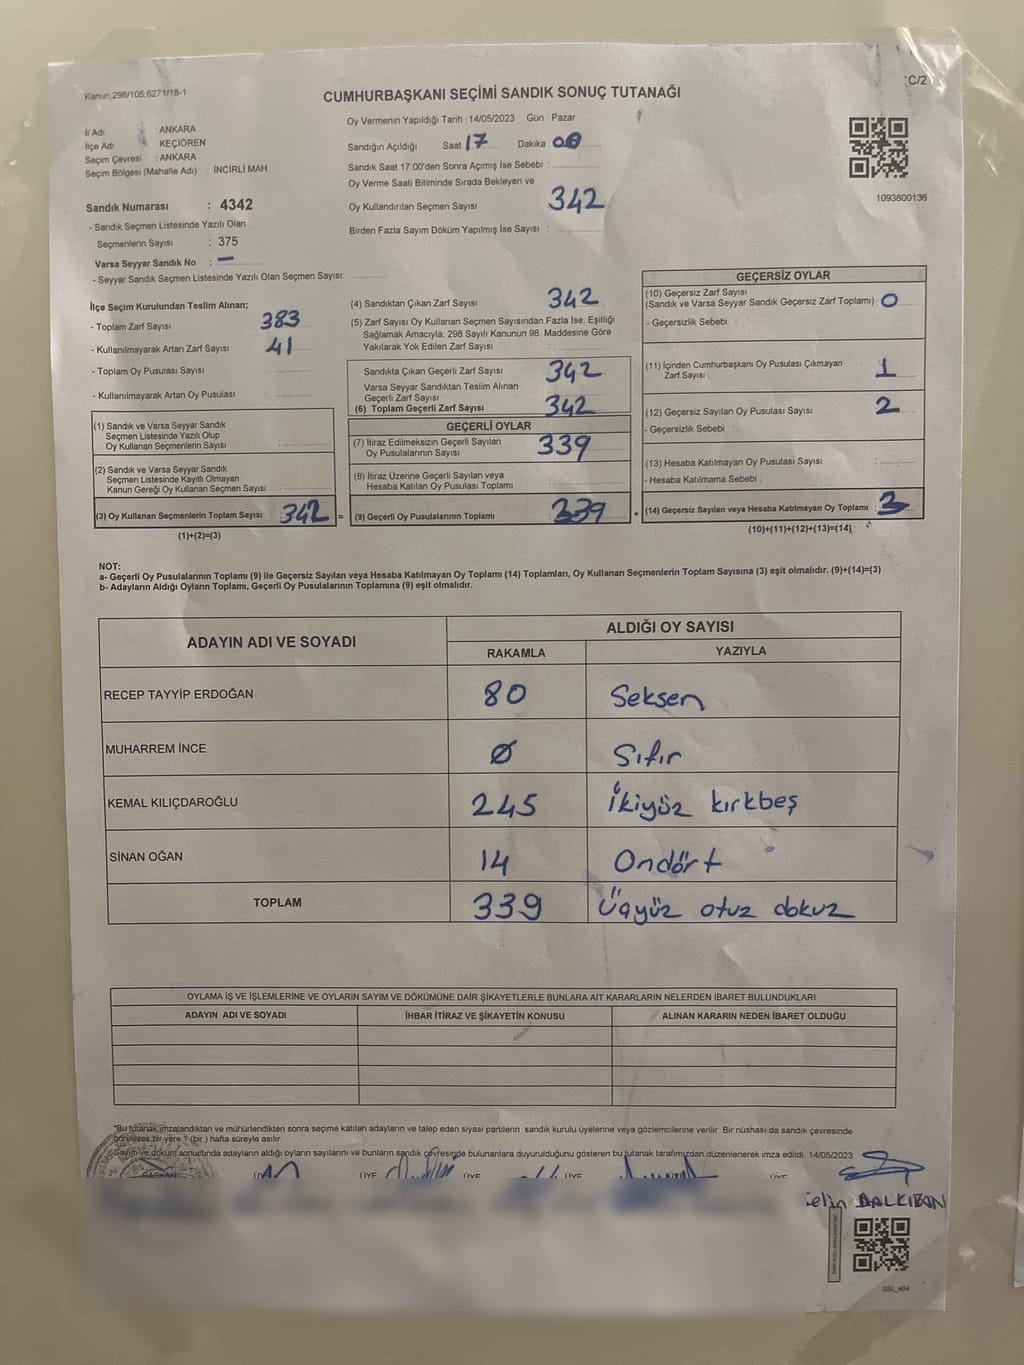 Kanun,298/105,6271/18-1
C/2
CUMHURBAŞKANI SEÇİMİ SANDIK SONUÇ TUTANAĞI
İl Adı : ANKARA
İlçe Adı : KEÇİÖREN
Seçim Çevresi : ANKARA
Seçim Bölgesi (Mahalle Adı) : İNCİRLİ MAH.
Sandık Numarası : 4342
- Sandık Seçmen Listesinde Yazılı Olan
Seçmenlerin Sayısı : 375
Varsa Seyyar Sandık No : –
- Seyyar Sandık Seçmen Listesinde Yazılı Olan Seçmen Sayısı:
Oy Vermenin Yapıldığı Tarih :14/05/2023 Gün : Pazar
Sandığın Açıldığı Saat :17 Dakika :00
Sandık Saat 17:00'den Sonra Açımış İse Sebebi :
Oy Verme Saati Bitiminde Sırada Bekleyen ve
Oy Kullandırılan Seçmen Sayısı 342
Birden Fazla Sayım Döküm Yapılmış İse Sayısı :
1093800136
İlçe Seçim Kurulundan Teslim Alınan;
- Toplam Zarf Sayısı 383
- Kullanılmayarak Artan Zarf Sayısı 41
- Toplam Oy Pusulası Sayısı :
- Kullanılmayarak Artan Oy Pusulası :
(1) Sandık ve Varsa Seyyar Sandık
Seçmen Listesinde Yazılı Olup
Oy Kullanan Seçmenlerin Sayısı :
(2) Sandık ve Varsa Seyyar Sandık
Seçmen Listesinde Kayıtlı Olmayan
Kanun Gereği Oy Kullanan Seçmen Sayısı :
(3) Oy Kullanan Seçmenlerin Toplam Sayısı : 342 =
(1)+(2)=(3)
(4) Sandıktan Çıkan Zarf Sayısı 342
(5) Zarf Sayısı Oy Kullanan Seçmen Sayısından Fazla İse, Eşitliği
Sağlamak Amacıyla; 298 Sayılı Kanunun 98. Maddesine Göre
Yakılarak Yok Edilen Zarf Sayısı :
Sandıkta Çıkan Geçerli Zarf Sayısı 342
Varsa Seyyar Sandıktan Teslim Alınan
Geçerli Zarf Sayısı :
(6) Toplam Geçerli Zarf Sayısı 342
GEÇERLİ OYLAR
(7) İtiraz Edilmeksizin Geçerli Sayılan
Oy Pusulalarının Sayısı 339
(8) İtiraz Üzerine Geçerli Sayılan veya
Hesaba Katılan Oy Pusulası Toplamı :
(9) Geçerli Oy Pusulalarının Toplamı : 339 +
GEÇERSİZ OYLAR
(10) Geçersiz Zarf Sayısı
(Sandık ve Varsa Seyyar Sandık Geçersiz Zarf Toplamı) : 0
- Geçersizlik Sebebi :
(11) İçinden Cumhurbaşkanı Oy Pusulası Çıkmayan
Zarf Sayısı 1
(12) Geçersiz Sayılan Oy Pusulası Sayısı 2
- Geçersizlik Sebebi :
(13) Hesaba Katılmayan Oy Pusulası Sayısı :
- Hesaba Katılmama Sebebi :
(14) Geçersiz Sayılan veya Hesaba Katılmayan Oy Toplamı : 3
(10)+(11)+(12)+(13)=(14)
NOT:
a- Geçerli Oy Pusulalarının Toplamı (9) ile Geçersiz Sayılan veya Hesaba Katılmayan Oy Toplamı (14) Toplamları, Oy Kullanan Seçmenlerin Toplam Sayısına (3) eşit olmalıdır. (9)+(14)=(3)
b- Adayların Aldığı Oyların Toplamı, Geçerli Oy Pusulalarının Toplamına (9) eşit olmalıdır.
ADAYIN ADI VE SOYADI ALDIĞI OY SAYISI
RAKAMLA YAZIYLA
RECEP TAYYİP ERDOĞAN 80 Seksen
MUHARREM İNCE 0 Sıfır
KEMAL KILIÇDAROĞLU 245 İkiyüz kırkbeş
SİNAN OĞAN 14 Ondört
TOPLAM 339 Üçyüz otuz dokuz
OYLAMA İŞ VE İŞLEMLERİNE VE OYLARIN SAYIM VE DÖKÜMÜNE DAİR ŞİKAYETLERLE BUNLARA AİT KARARLARIN NELERDEN İBARET BULUNDUKLARI
ADAYIN ADI VE SOYADI İHBAR İTİRAZ VE ŞİKAYETİN KONUSU ALINAN KARARIN NEDEN İBARET OLDUĞU
*Bu tutanak imzalandıktan ve mühürlendikten sonra seçime katılan adayların ve talep eden siyasi partilerin sandık kurulu üyelerine veya gözlemcilerine verilir. Bir nüshası da sandık çevresinde
görülecek bir yere 1 (bir ) hafta süreyle asılır.
Sayım ve döküm sonucunda adayların aldığı oyların sayılarını ve bunların sandık çevresinde bulunanlara duyurulduğunu gösteren bu tutanak tarafımızdan düzenlenerek imza edildi. 14/05/2023
BAŞKAN ÜYE ÜYE ÜYE ÜYE ÜYE
SSİ_404